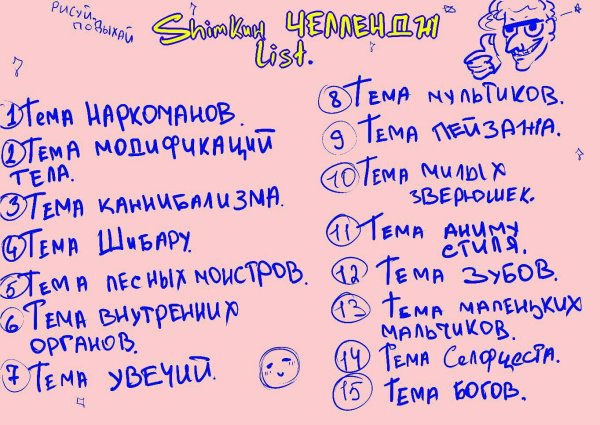 РИСУЙ-
ПОДЫХАЙ
Shimкин ЧЕЛЛЕНДЖ
list.
1 Тема НАРКОМАНОВ.
2 ТЕМА МОДИФИКАЦИЙ
ТЕЛА.
3 ТЕМА КАННИБАЛИЗМА.
4 ТЕМА ШИБАРУ.
5 ТЕМА ЛЕСНЫХ МОНСТРОВ.
6 ТЕМА ВНУТРЕННИХ
ОРГАНОВ.
7 ТЕМА УВЕЧИЙ.
8 ТЕМА МУЛЬТИКОВ.
9 ТЕМА ПЕЙЗАЖА.
10 ТЕМА МИЛЫХ
ЗВЕРЮШЕК.
11 ТЕМА АНИМУ
СТИЛЯ.
12 ТЕМА ЗУБОВ.
13 ТЕМА МАЛЕНЬКИХ
МАЛЬЧИКОВ.
14 ТЕМА Селфцеста.
15 ТЕМА БОГОВ.